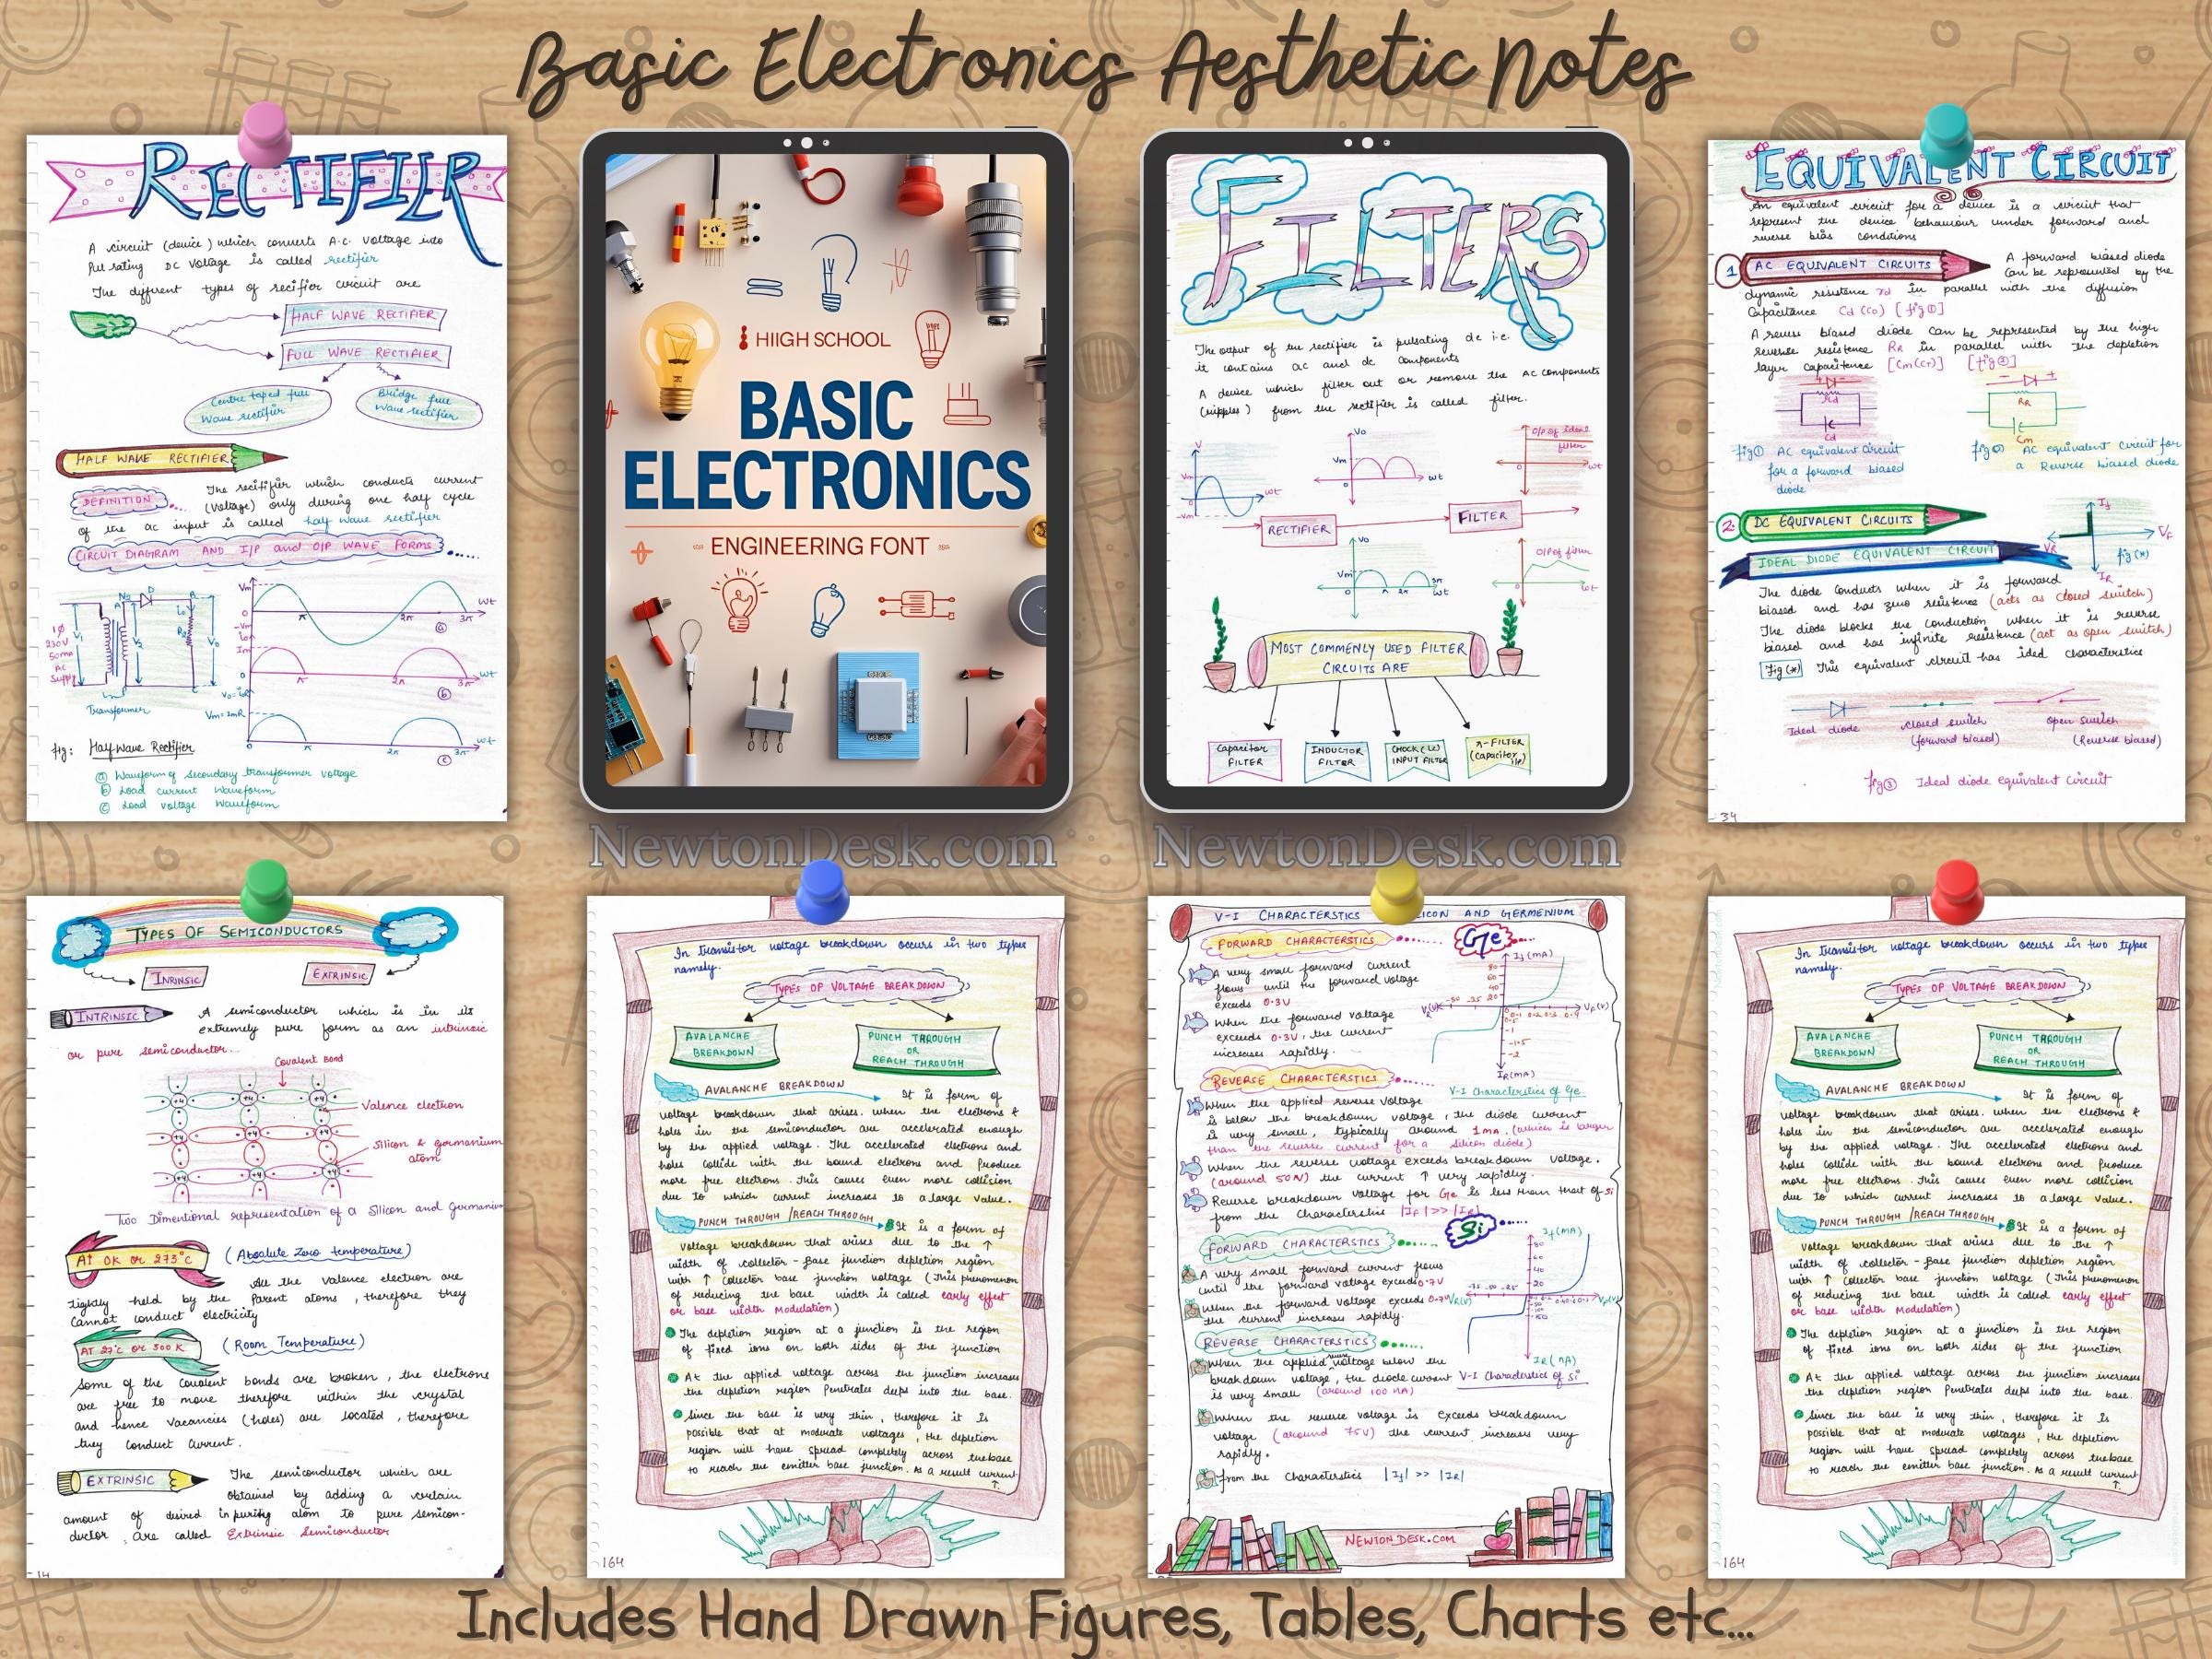 Basic Electronics Aesthetic Notes
RECTIFIER
A circuit (device) which converts A.C. voltage into
Pulsating DC Voltage is called rectifier
The different types of recifier circuit are
HALF WAVE RECTIFIER
FULL WAVE RECTIFIER
Centre taped full
Wave rectifier
Bridge full
Wave rectifier
HALF WAVE RECTIFIER
DEFINITION
The rectifier which conducts current
(Voltage) only during one half cycle
of the ac input is called half wave rectifier
CIRCUIT DIAGRAM AND I/P and O/P WAVE FORMS
1φ
230V
50ma
AC
Supply
V1
V2
Transformer
Vm
0
-Vm
π
2π
3π
wt
(a)
Im
0
π
2π
3π
wt
(b)
Vm=ImR
π
2π
3π
wt
(c)
fig: Half Wave Rectifier
(a) Waveform of secondary transformer voltage
(b) Load current Waveform
(c) Load voltage Waveform
HIIGH SCHOOL
BASIC
ELECTRONICS
ENGINEERING FONT
NewtonDesk.com
FILTERS
The output of the rectifier is pulsating dc i.e.
it contains ac and dc components
A device which filter out or remove the AC components
(ripples) from the rectifier is called filter.
V
Vm
0
-Vm
wt
Vo
Vm
0
wt
O/P of ideal
filter
0
wt
RECTIFIER
FILTER
Vo
Vm
0
π
2π
3π
wt
O/P of filter
wt
MOST COMMENLY USED FILTER
CIRCUITS ARE
CAPACITOR
FILTER
INDUCTOR
FILTER
CHOCK (LC)
INPUT FILTER
π-FILTER
(Capacitor i/p)
NewtonDesk.com
EQUIVALENT CIRCUIT
An equivalent circuit for a device is a circuit that
represent the device behaviour under forward and
reverse bias conditions
1 AC EQUIVALENT CIRCUITS
A forward biased diode
Can be represented by the
dynamic resistance rd in parallel with the diffusion
Capacitance Cd (CD) [fig①]
A reverse biased diode can be represented by the high
reverse resistance RR in parallel with the depletion
layer capacitence [Cm(CT)] [fig②]
rd
Cd
RR
Cm
fig① AC equivalent Circuit
for a forward biased
diode
fig② AC equivalent circuit for
a Reverse biased diode
2. DC EQUIVALENT CIRCUITS
IDEAL DIODE EQUIVALENT CIRCUIT
If
VF
VR
IR
fig(*)
The diode conducts when it is forward
biased and has zero resistence (acts as closed switch)
The diode blocks the conduction when it is reverse
biased and has infinite resistence (act as open switch)
Fig(*) This equivalent circuit has ided characteristics
Ideal diode
closed switch
(forward biased)
open switch
(Reverse biased)
fig③ Ideal diode equivalent circuit
34
TYPES OF SEMICONDUCTORS
INRINSIC
EXTRINSIC
INTRINSIC
A semiconductor which is in its
extremely pure form as an intrinsic
or pure semiconductor...
Covalent Bond
Valence electron
Silicon & germanium
atom
Two Dimentional representation of a Silicon and Germanium
AT 0K OR 273°C
(Absolute Zero temperature)
All the valence electron are
tightly held by the Parent atoms, therefore they
Cannot conduct electricity
AT 27°C OR 300 K
(Room Temperature)
Some of the Covalent bonds are broken, the electrons
are free to move therefore within the crystal
and hence vacancies (holes) are located, therefore
they conduct current.
EXTRINSIC
The semiconductor which are
Obtained by adding a certain
amount of desired inpurity atom to pure semicon-
ductor, are called Extrinsic Semiconductor
14
In transistor voltage breakdown occurs in two types
namely.
TYPES OF VOLTAGE BREAKDOWN
AVALANCHE
BREAKDOWN
PUNCH THROUGH
OR
REACH THROUGH
AVALANCHE BREAKDOWN
It is form of
voltage breakdown that arises. when the electrons &
holes in the semiconductor are accelerated enough
by the applied voltage. The accelerated electrons and
holes Collide with the bound electrons and Produce
more free electrons. This causes even more collision
due to which current increases to a large Value.
PUNCH THROUGH /REACH THROUGH
It is a form of
voltage breakdown that arises due to the ↑
width of collector-Base junction depletion region
with ↑ Collector base junction voltage (This phenomenon
of reducing the base width is called early effect
or base width Modulation)
The depletion region at a junction is the region
of fixed ions on both sides of the junction
At the applied voltage across the junction increases
the depletion region Penetrates deeps into the base.
Since the base is very thin, therefore it is
possible that at moderate voltages, the depletion
region will have spread completely across the base
to reach the emitter base junction. As a result current
↑.
164
V-I CHARACTERSTICS
ICON AND GERMENIUM
FORWARD CHARACTERSTICS
Ge
A very small forward current
flows until the forward voltage
exceeds 0.3V
When the forward voltage
exceeds 0.3V, the current
increases rapidly.
If (mA)
VF(V)
IR(mA)
V-I Characterstics of Ge
REVERSE CHARACTERSTICS
When the applied reverse voltage
is below the breakdown voltage, the diode current
is very small, typically around 1mA. (which is larger
than the reverse current for a silicon diode)
When the reverse voltage exceeds breakdown voltage.
(around 50N) the current ↑ very rapidly.
Reverse breakdown voltage for Ge is less than that of Si
from the Characterstics |IF| >> |IR|
Si
FORWARD CHARACTERSTICS
A very small forward current flows
until the forward voltage exceeds 0.7V
When the forward voltage exceeds 0.7V
the current increases rapidly.
If (mA)
VR(V)
VF(V)
IR (nA)
V-I Characterstics of Si
REVERSE CHARACTERSTICS
When the applied reverse voltage below the
breakdown voltage, the diode current
is very small (around 100 nA)
When the reverse voltage is exceeds breakdown
voltage (around 75V) the current increases very
rapidly.
from the Characterstics |If| >> |IR|
NEWTONDESK.COM
In transistor voltage breakdown occurs in two types
namely.
TYPES OF VOLTAGE BREAKDOWN
AVALANCHE
BREAKDOWN
PUNCH THROUGH
OR
REACH THROUGH
AVALANCHE BREAKDOWN
It is form of
voltage breakdown that arises. when the electrons &
holes in the semiconductor are accelerated enough
by the applied voltage. The accelerated electrons and
holes Collide with the bound electrons and Produce
more free electrons. This causes even more collision
due to which current increases to a large Value.
PUNCH THROUGH /REACH THROUGH
It is a form of
voltage breakdown that arises due to the ↑
width of collector-Base junction depletion region
with ↑ Collector base junction voltage (This phenomenon
of reducing the base width is called early effect
or base width Modulation)
The depletion region at a junction is the region
of fixed ions on both sides of the junction
At the applied voltage across the junction increases
the depletion region Penetrates deeps into the base.
Since the base is very thin, therefore it is
possible that at moderate voltages, the depletion
region will have spread completely across the base
to reach the emitter base junction. As a result current
↑.
164
Includes Hand Drawn Figures, Tables, Charts etc...